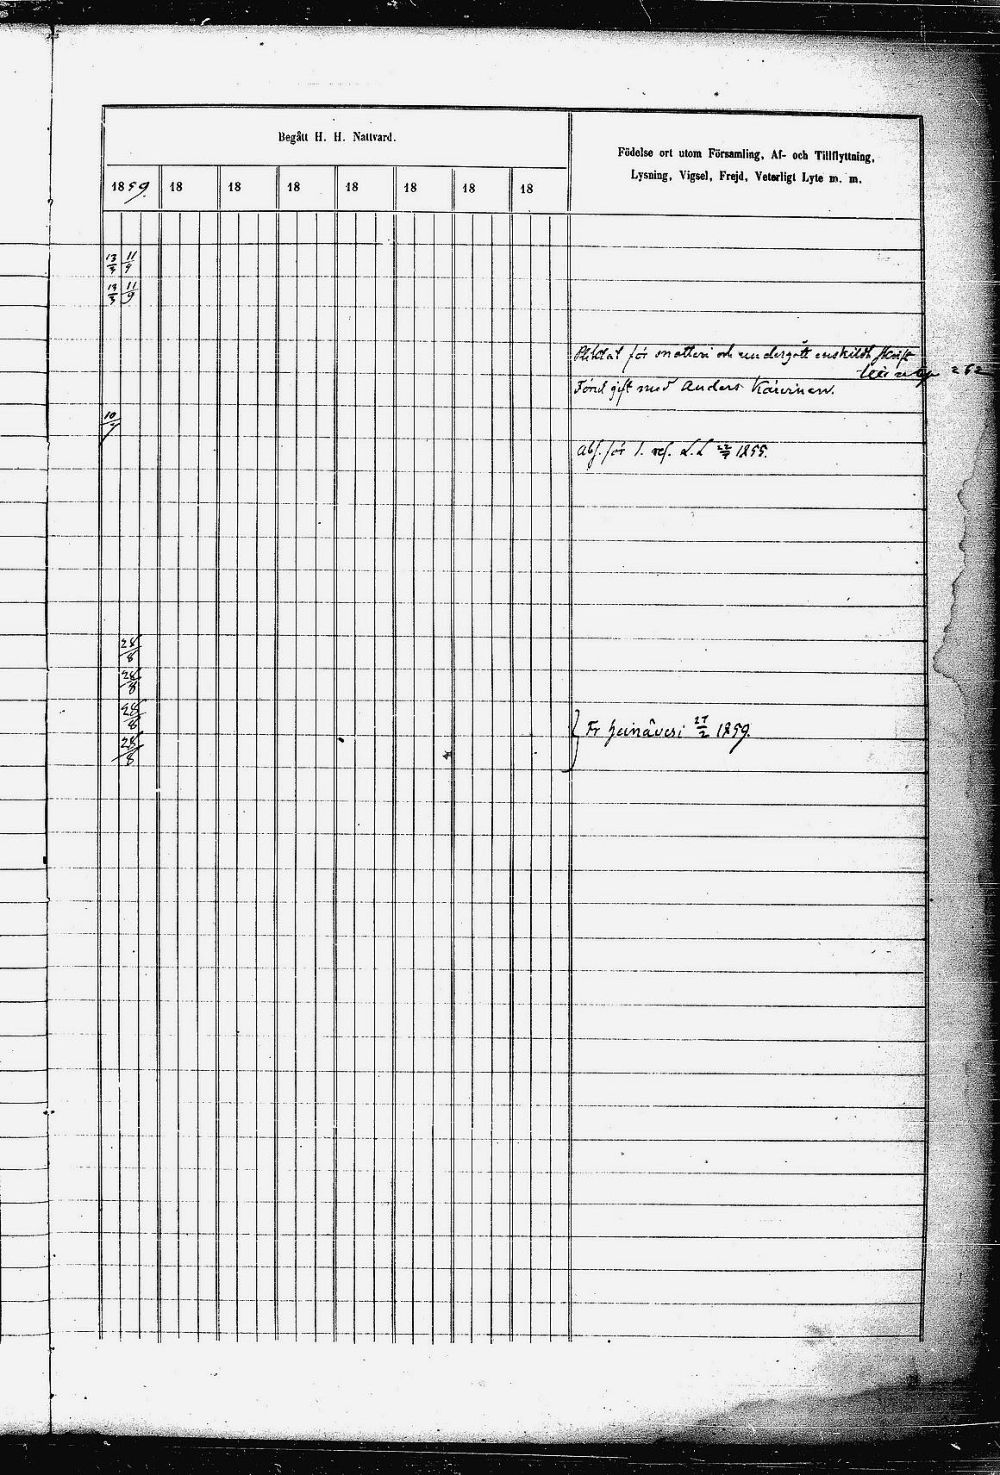 Begått H. H. Nattvard.
Födelse ort utom Församling, Af- och Tillflyttning,
Lysning, Vigsel, Frejd, Veterligt Lyte m. m.
1859. 18 18 18 18 18 18 18
13/3 11/9
13/3 11/9
för och undergått enskildt skrift
262
gift med Anders
10
Abs. för 1. res. L. L 22/7 1855.
28/8
28/8
28/8
Fr Heinävesi 27/2 1859.
28/8